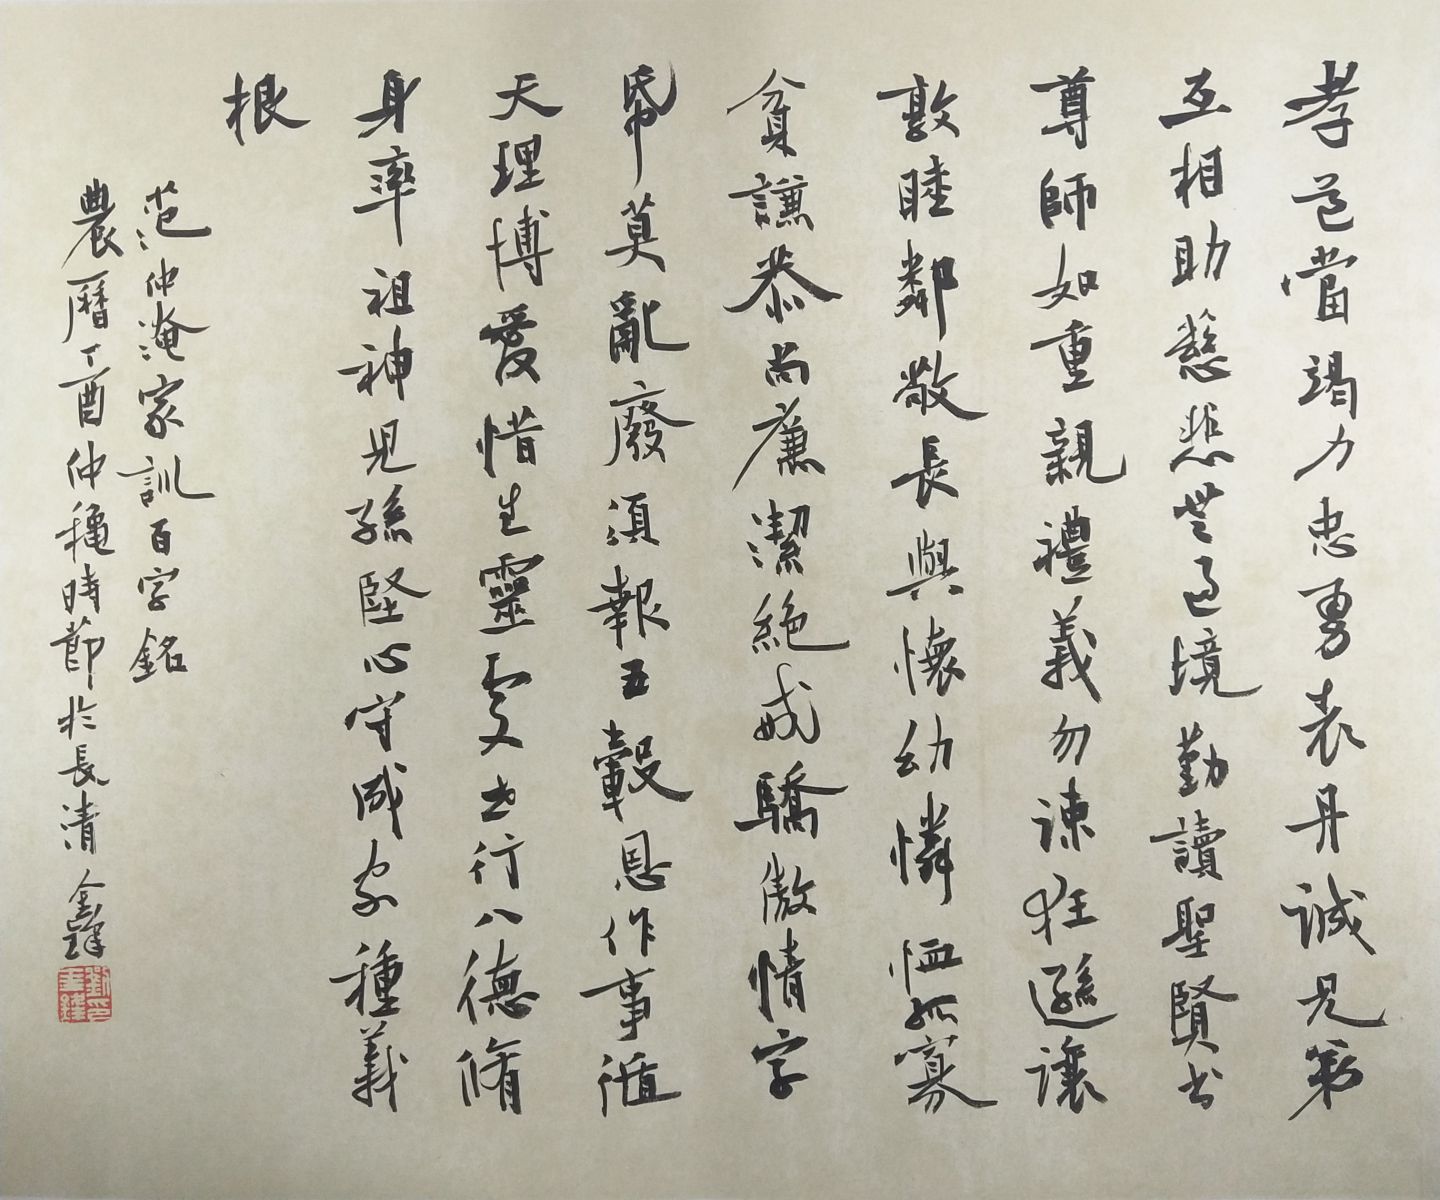 孝道當竭力忠勇表丹誠兄弟
互相助慈悲無過境勤讀聖賢書
尊師如重親禮義勿疎狂遜讓
敦睦鄰敬長與懷幼憐恤孤寡
貧謙恭尚廉潔絕戒驕傲情字
帋莫亂廢須報五穀恩作事循
天理博愛惜生靈處世行八德脩
身率祖神兒孫堅心守成家種義
根
范仲淹家訓百字銘
農曆丁酉仲龝時節於長清金鋒